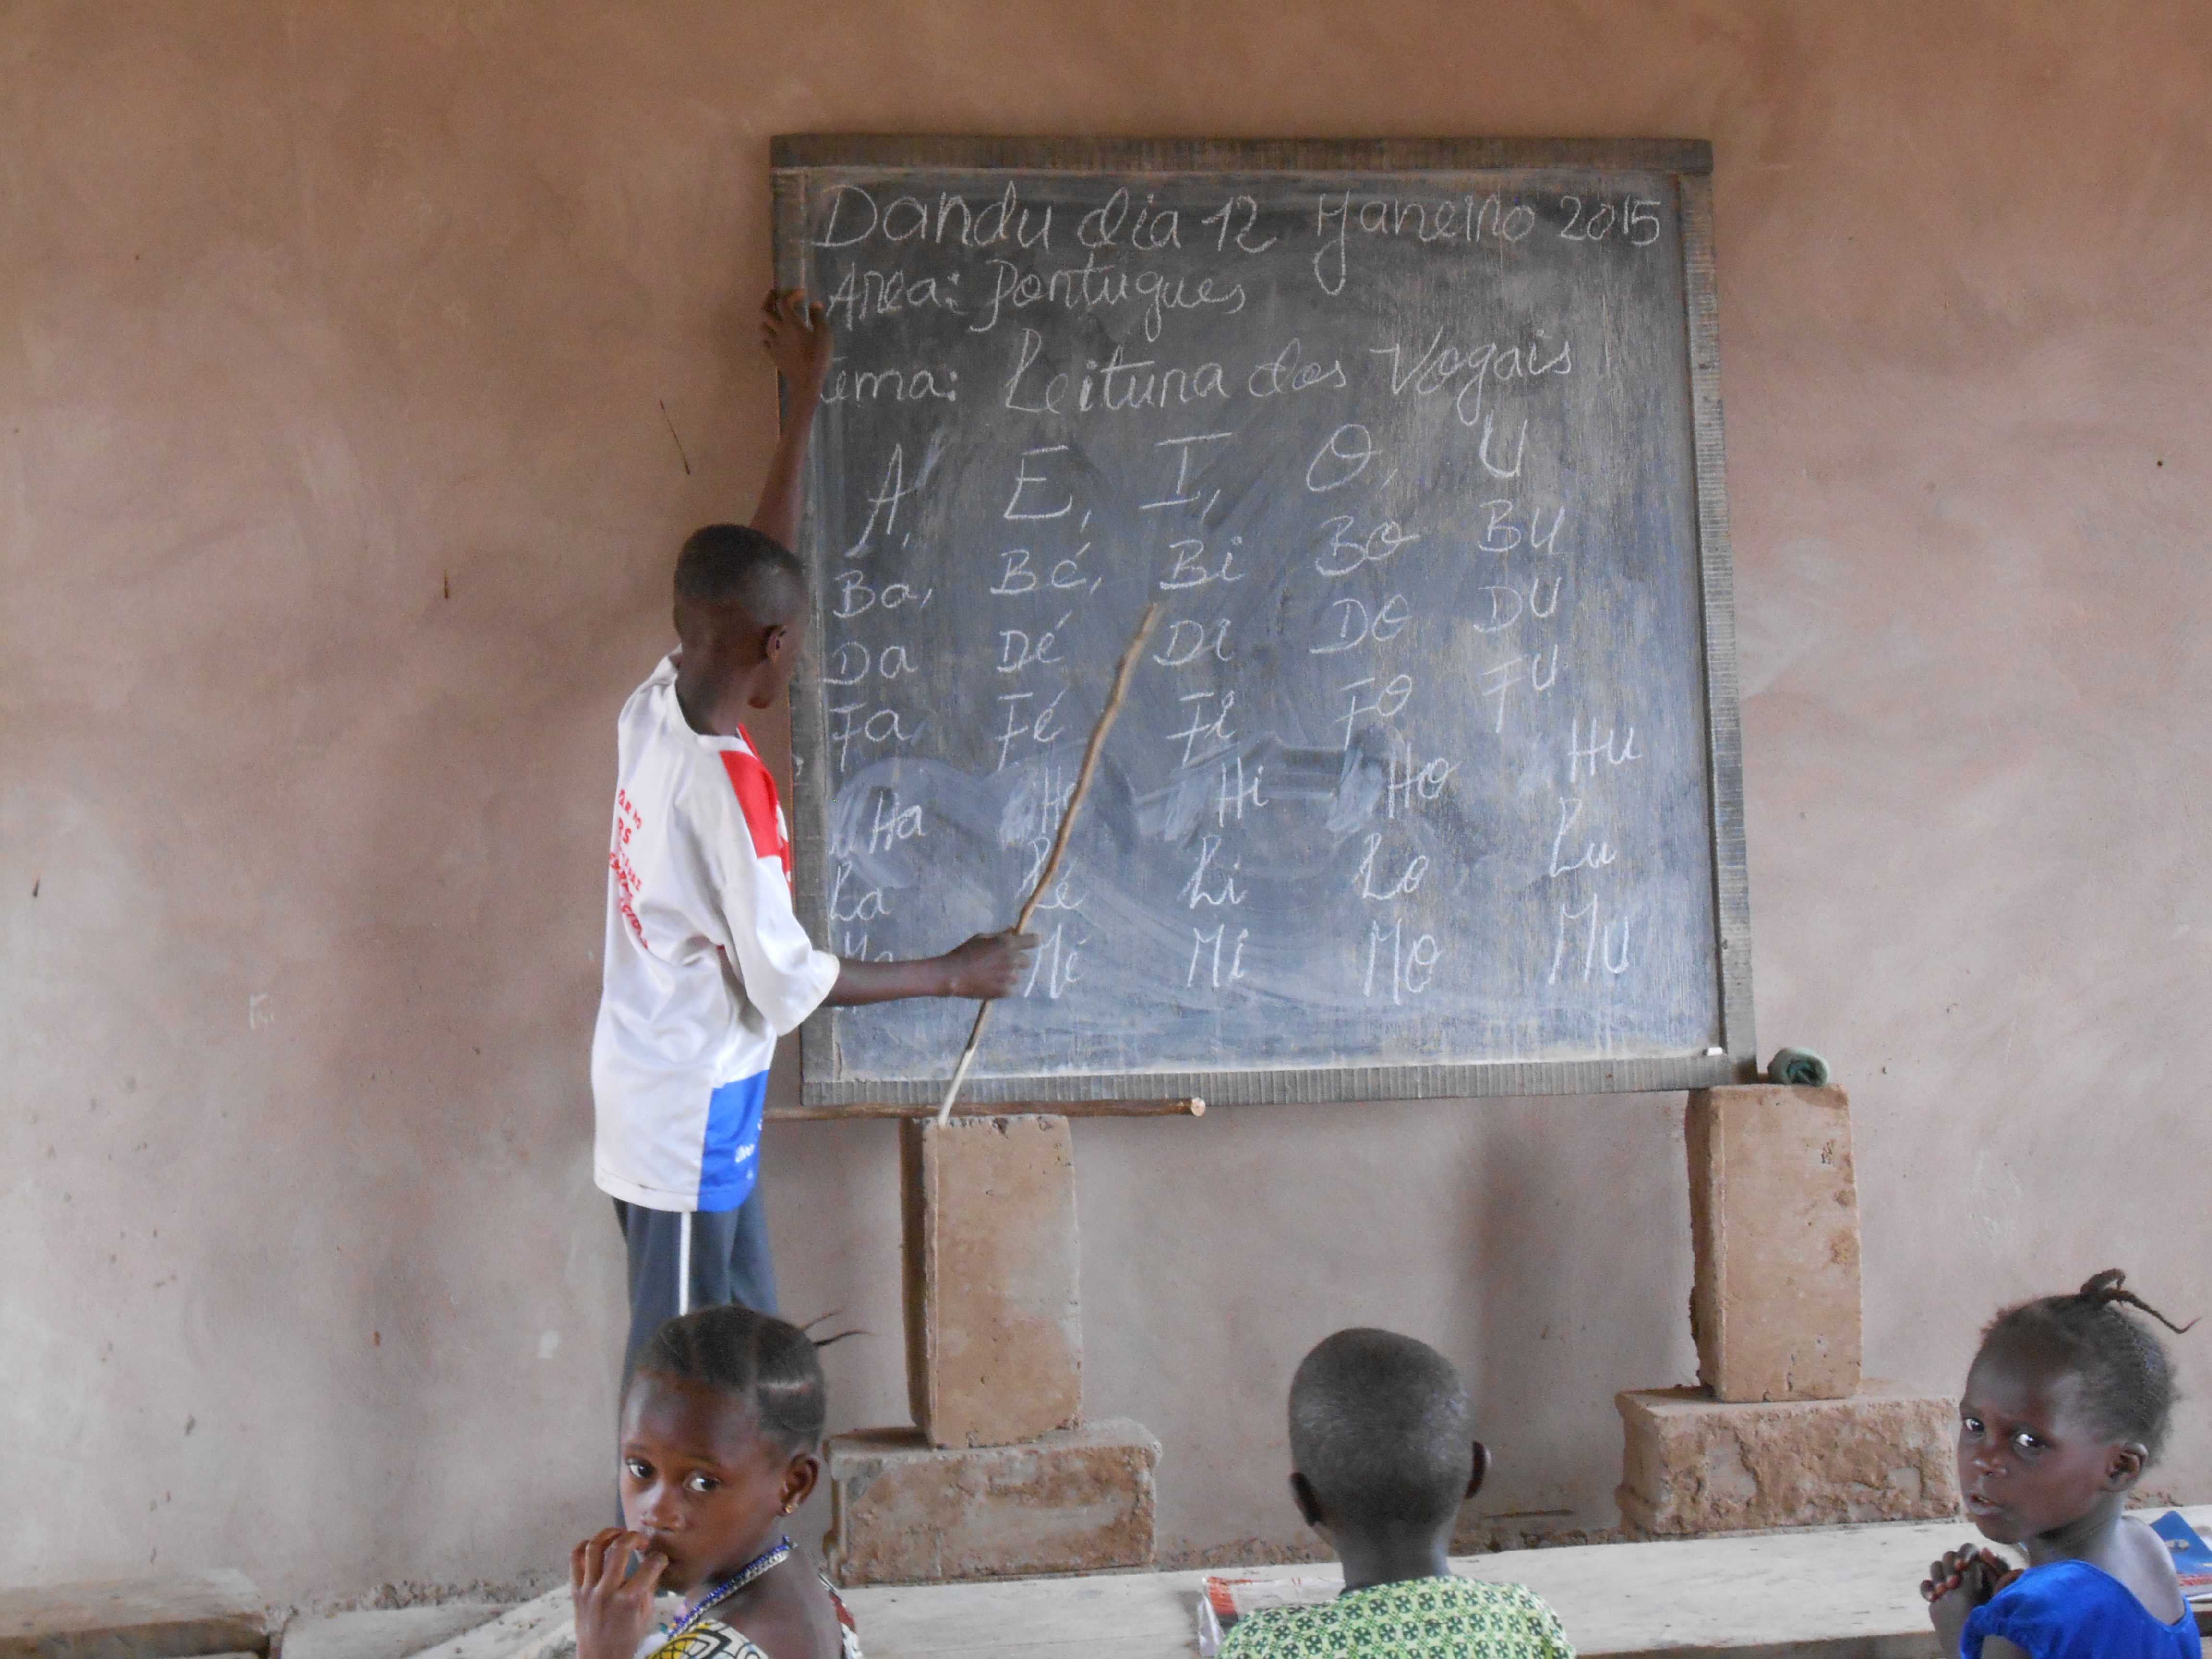 Dandu dia 12 Janeiro 2015
Area: Portugues
Tema: Leitura das Vogais
A, E, I, O, U
Ba, Bé, Bi Bo BU
Da Dé Di Do DU
Fa, Fé Fi Fo FU
Ha Hé Hi Ho Hu
La Lé Li Lo Lu
Ma Mé Mi Mo MU